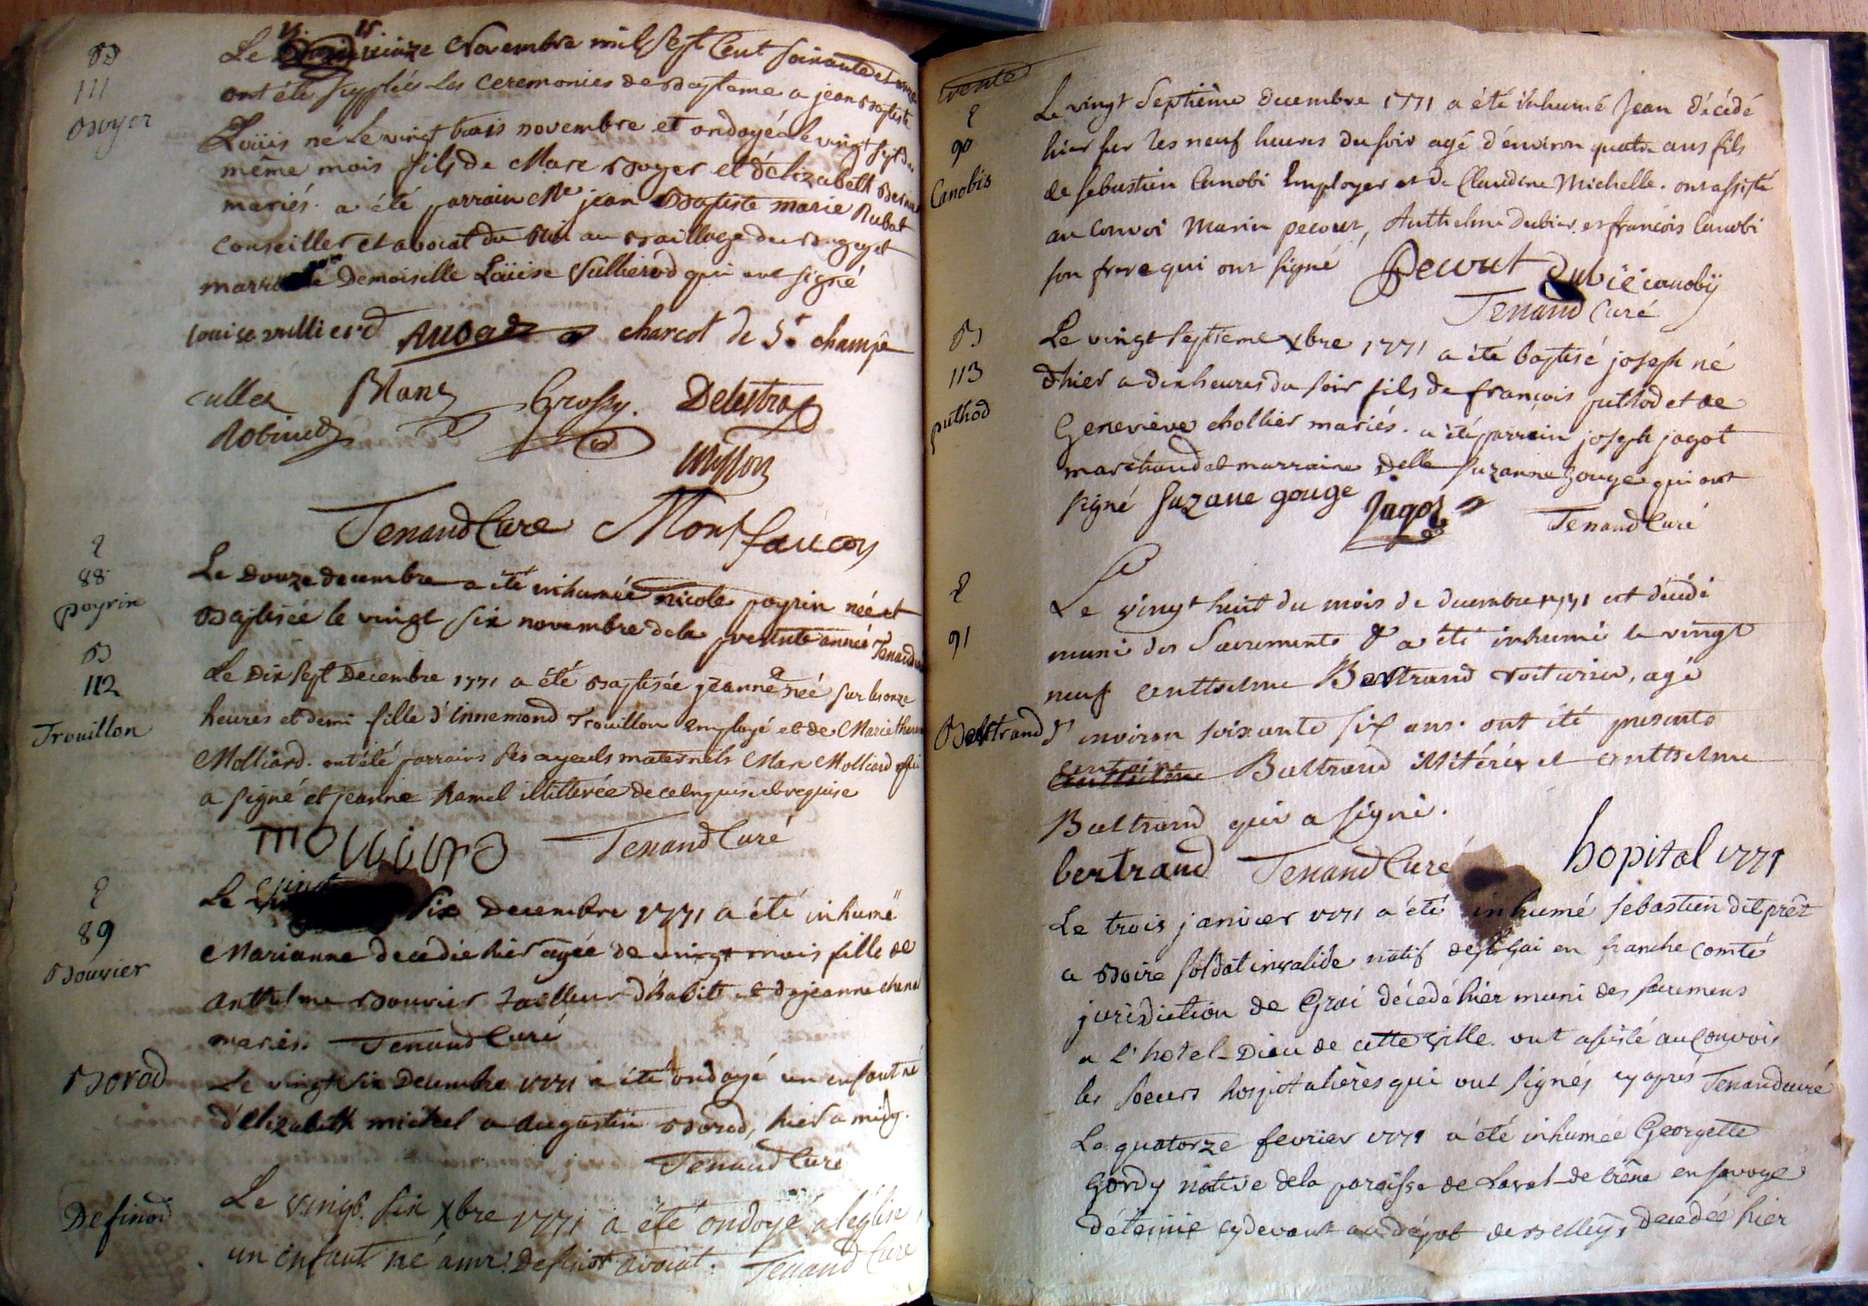 B
111
Boyer
Le quinze Novembre mil sept Cent soixante et onze
ont été supplées Les Ceremonies de Bapteme a jean Baptiste
Loüis né Le vingt trois novembre et ondoyé le vingt sept du
même mois fils de Marc Boyer et d'elizabeth
mariés. a été parrain Mr jean Baptiste marie Rubat
Conseiller et avocat du Roi au Baillage du Bugey et
marraine Demoiselle Loüise Vullierod qui ont signé
louise vullierd charcot de St champ
Blanc Grossy. Delestra
Tenand Curé Montfaucon
88
poyrin
Le Douze decembre a été inhumée nicole poyrin née et
Baptisée le vingt six novembre de la presente année Tenand
B
112
Trouillon
Le Dix sept Decembre 1771 a été Baptisée jeanne née sur les onze
heures et demi fille d'Innemond Trouillon Employé et de Marie
Molliard. ont été parrains ses ayeuls maternels Marc Molliard qui
a signé et jeanne Ramel illitterée de ce enquise et requise
Tenand Curé
89
Bouvier
Le vingt six Decembre 1771 a été inhumé
Marianne decedée hier agée de vingt mois fille de
Anthelme Bouvier Tailleur d'habits et de jeanne
mariés. Tenand Curé
Borod
Le vingt six Decembre 1771 a été ondoyé un enfant né
d'elizabeth michel a Augustin Borod, hier a midy.
Tenand Curé
Definod
Le vingt six Xbre 1771 a été ondoyé a l'église
un enfant né a mr. Definod avocat. Tenand Curé
90
Canobis
Le vingt Septième decembre 1771 a été inhumé Jean décédé
hier sur les neuf heures du soir agé d'environ quatre ans fils
de Sebastien Canobi Employer et de Claudine Michelle. ont assisté
au convoi Marin pecout, Anthelme Dubié et françois Canobi
son frere qui ont signé Pecout Dubié canobij
Tenand Curé
B
113
puthod
Le vingt septieme Xbre 1771 a été baptisé joseph né
d'hier a dix heures du soir fils de françois puthod et de
Geneviève chollier mariés. a été parrain joseph jagot
marchand et marraine Delle Suzanne Gouge qui ont
signé Suzane gouge Jagot Tenand Curé
91
Bertrand
Le vingt huit du mois de decembre 1771 est décédé
muni des Sacrements & a été inhumé le vingt
neuf anthelme Bertrand voiturier, agé
d'environ soixante six ans. ont été presents
antoine Bertrand illitéré et anthelme
Bertrand qui a signé.
bertrand Tenand Curé
hopital 1771
Le trois janvier 1771 a été inhumé Sebastien dit prêt
a Boire soldat invalide natif de en franche comté
jurisdiction de Grai décedé hier muni des sacremens
a l'hotel-Dieu de cette ville. ont assisté au Convoi
les Soeurs hospitalières qui ont signés cy apres Tenand curé
Le quatorze fevrier 1771 a été inhumée Georgette
Gordy native de la paroisse de en savoye
détenüe cydevant au dépot de Belley, decedée hier